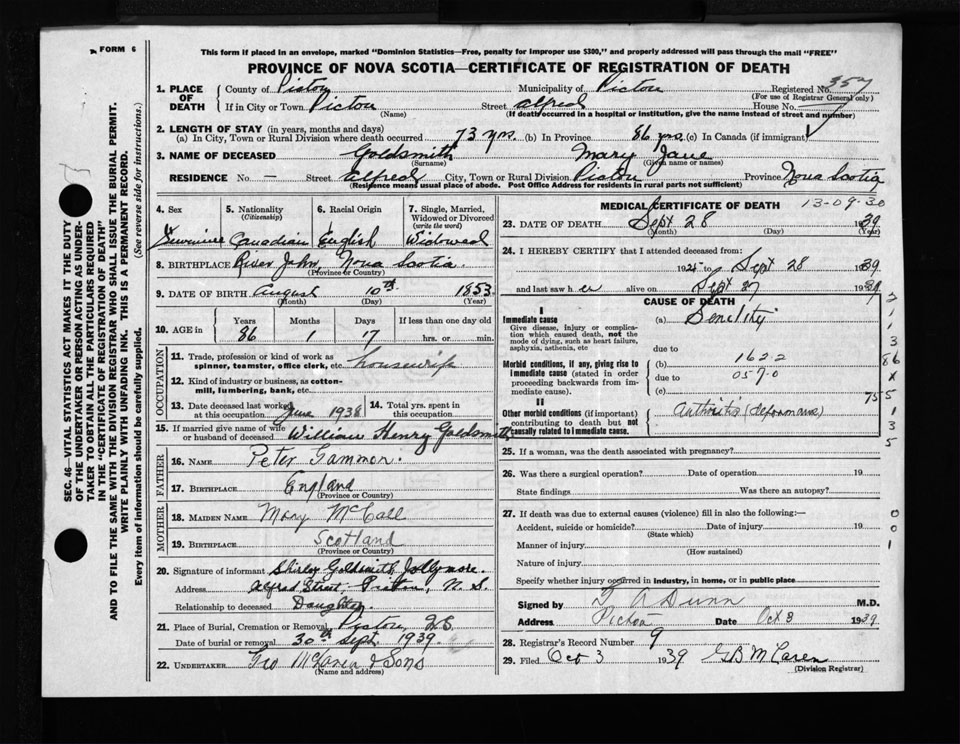 FORM 6
This form if placed in an envelope, marked "Dominion Statistics—Free, penalty for improper use $300," and properly addressed will pass through the mail "FREE"
PROVINCE OF NOVA SCOTIA—CERTIFICATE OF REGISTRATION OF DEATH
1. PLACE OF DEATH
County of Pictou Municipality of Pictou Registered No. 357
(For use of Registrar General only)
If in City or Town Pictou Street Alfred House No.
(Name) (If death occurred in a hospital or institution, give the name instead of street and number)
2. LENGTH OF STAY (in years, months and days)
(a) In City, Town or Rural Division where death occurred 73 yrs. (b) In Province 86 yrs. (c) In Canada (if immigrant)
3. NAME OF DECEASED Goldsmith Mary Jane
(Surname) (Given name or names)
RESIDENCE No. — Street Alfred City, Town or Rural Division Pictou Province Nova Scotia
(Residence means usual place of abode. Post Office Address for residents in rural parts not sufficient)
SEC. 46—VITAL STATISTICS ACT MAKES IT THE DUTY
OF THE UNDERTAKER OR PERSON ACTING AS UNDER-
TAKER TO OBTAIN ALL THE PARTICULARS REQUIRED
IN THE "CERTIFICATE OF REGISTRATION OF DEATH"
AND TO FILE THE SAME WITH THE DIVISION REGISTRAR WHO SHALL ISSUE THE BURIAL PERMIT.
WRITE PLAINLY WITH UNFADING INK. THIS IS A PERMANENT RECORD.
Every item of information should be carefully supplied. (See reverse side for instructions.)
4. Sex 5. Nationality 6. Racial Origin 7. Single, Married,
(Citizenship) Widowed or Divorced
(write the word)
Feminine Canadian English Widowed
8. BIRTHPLACE River John, Nova Scotia.
(Province or Country)
9. DATE OF BIRTH August 10th 1853
(Month) (Day) (Year)
10. AGE in Years Months Days If less than one day old
86 1 17 hrs. or min.
OCCUPATION
11. Trade, profession or kind of work as housewife
spinner, teamster, office clerk, etc.
12. Kind of industry or business, as cotton-
mill, lumbering, bank, etc.
13. Date deceased last worked at this occupation June 1938 14. Total yrs. spent in this occupation
15. If married give name of wife or husband of deceased William Henry Goldsmith
FATHER
16. NAME Peter Gammon.
17. BIRTHPLACE England
(Province or Country)
MOTHER
18. MAIDEN NAME Mary McCall
19. BIRTHPLACE Scotland
(Province or Country)
20. Signature of informant Shirley Goldsmith Jollymore.
Address Alfred Street, Pictou, N. S.
Relationship to deceased Daughter.
21. Place of Burial, Cremation or Removal Pictou, N.S.
Date of burial or removal 30th Sept 1939
22. UNDERTAKER Geo McLaren & Sons
(Name and address)
MEDICAL CERTIFICATE OF DEATH
13-09-30
23. DATE OF DEATH Sept 28 1939
(Month) (Day) (Year)
24. I HEREBY CERTIFY that I attended deceased from:
192 to Sept 28 1939
and last saw her alive on Sept 27 1939
CAUSE OF DEATH
I
Immediate cause (a) Senility
Give disease, injury or complica-
tion which caused death, not the
mode of dying, such as heart failure,
asphyxia, asthenia, etc
due to
Morbid conditions, if any, giving rise to (b) 1622
immediate cause (stated in order due to 057.0
proceeding backwards from im-
mediate cause). (c) 75
II
Other morbid conditions (if important) Arthritis (deformans)
contributing to death but not
causally related to immediate cause.
25. If a woman, was the death associated with pregnancy?
26. Was there a surgical operation? Date of operation 19
State findings Was there an autopsy?
27. If death was due to external causes (violence) fill in also the following:—
Accident, suicide or homicide? Date of injury 19
(State which)
Manner of injury
(How sustained)
Nature of injury
Specify whether injury occurred in industry, in home, or in public place
Signed by A Dunn M.D.
Address Pictou Date Oct 3 1939
28. Registrar's Record Number 9
29. Filed Oct 3 1939 GB McLaren
(Division Registrar)